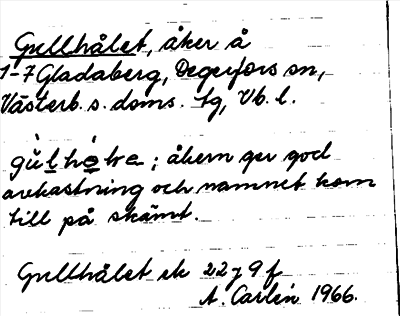 Gullhålet, åker å
1-7 Gladaberg, Degerfors sn,
Västerb. s. doms. tg, Vb. l.
åkern ger god
avkastning och namnet kom
till på skämt.
Gullhålet ek 22 j 9 f
A. Carlén 1966.